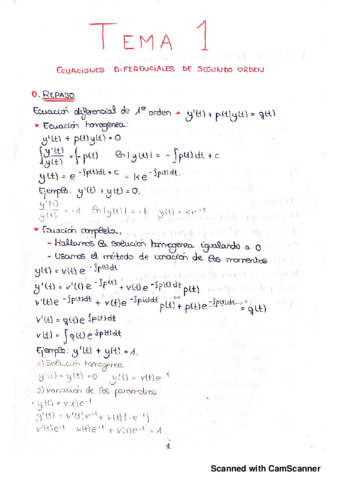 TEMA 1
ECUACIONES DIFERENCIALES DE SEGUNDO ORDEN
0. REPASO
Ecuación diferencial de 1er orden → y'(t) + p(t)y(t) = q(t)
* Ecuación homogenea:
y'(t) + p(t)y(t) = 0
∫ y'(t)/y(t) = ∫- p(t) ln|y(t)| = - ∫p(t)dt + c
y(t) = e^-∫p(t)dt + c = K e^-∫p(t)dt.
Ejemplo: y'(t) + y(t) = 0.
y'(t)/y(t) = -1 ln|y(t)| = -t y(t) = ke^-t
* Ecuación completa.
- Hallamos la solución homogenea igualando a 0
- Usamos el método de variación de los momentos
y(t) = v(t) e^-∫p(t)dt
y'(t) = v'(t) e^-∫p(t) + v(t) e^-∫p(t)dt p(t)
v'(t) e^-∫p(t)dt + v(t) e^-∫p(t)dt p(t) + p(t) e^-∫p(t)dt = q(t)
v'(t) = q(t) e^∫p(t)dt
v(t) = ∫q(t) e^∫p(t)dt
Ejemplo: y'(t) + y(t) = 1.
1) Solución homogenea
y'(t) - y(t) = 0 y(t) = v(t) e^-t
2) variación de los parámetros
y(t) = v(t) e^-t
y'(t) = v'(t) e^-t + v(t)(-e^-t)
v'(t)e^-t - v(t)e^-t + v(t)e^-t = 1
1
Scanned with CamScanner